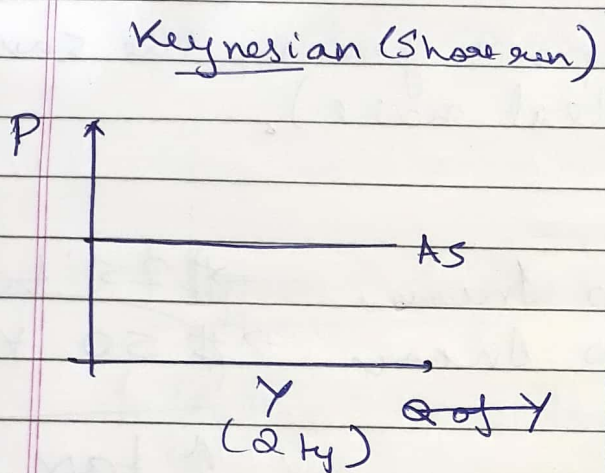 Keynesian (Short run)
P
AS
Y
(Qty)
Q of Y